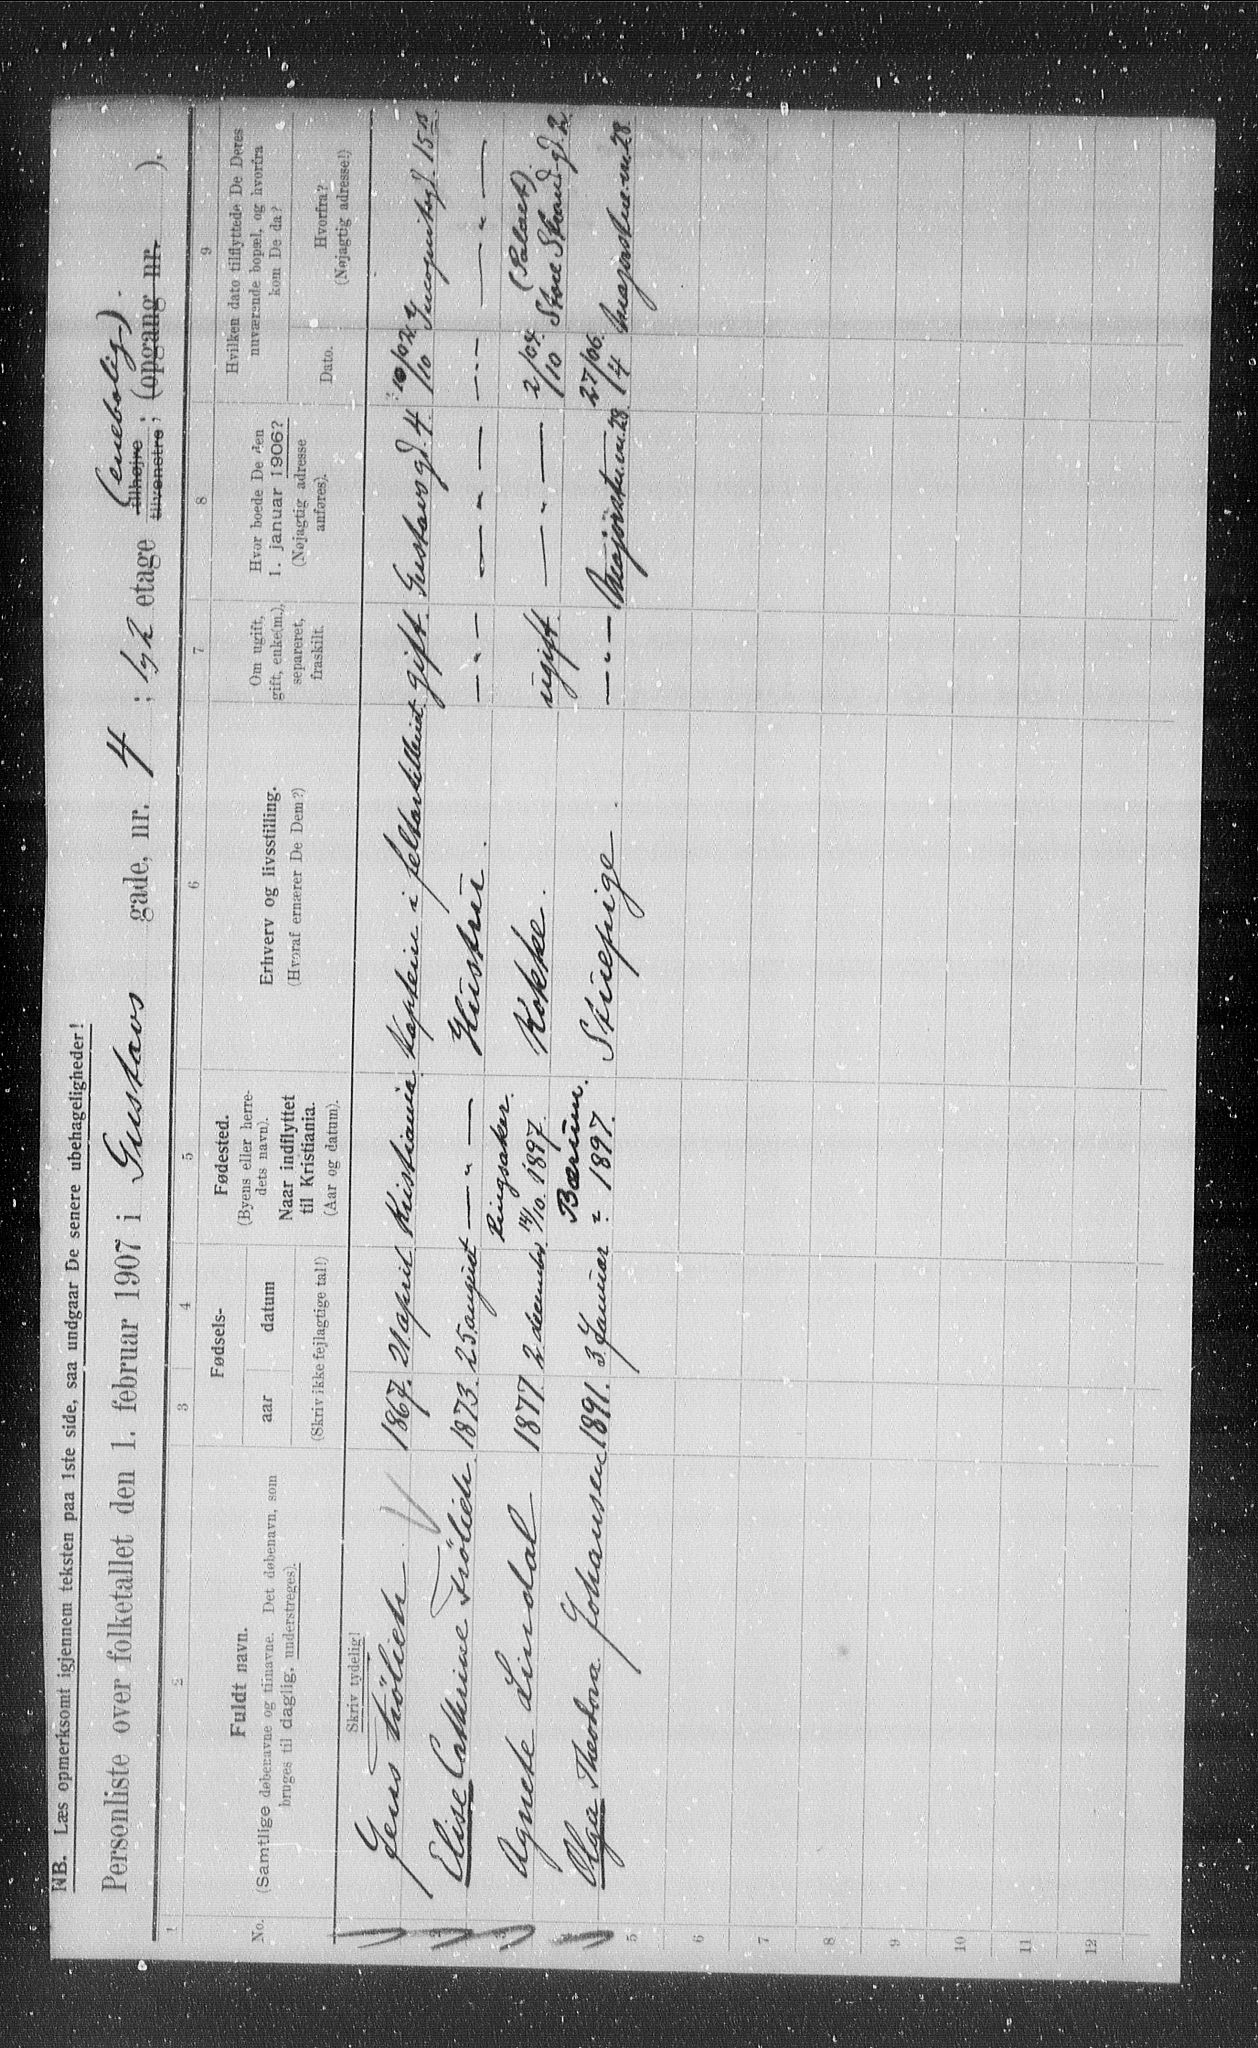 NB. Læs opmerksomt igjennem teksten paa 1ste side, saa undgaar De senere ubehageligheder!
Personliste over folketallet den 1. februar 1907 i Gustavs gade, nr. 4; 1 & 2 etage tilhøjre tilvenstre (enebolig); (opgang nr. ).
1 2 3 4 5 6 7 8 9
No.
Fuldt navn.
(Samtlige døbenavne og tilnavne. Det døbenavn, som
bruges til daglig, understreges).
Skriv tydelig!
Fødsels-
aar datum
(Skriv ikke fejlagtige tal!)
Fødested.
(Byens eller herre-
dets navn).
Naar indflyttet
til Kristiania.
(Aar og datum).
Erhverv og livsstilling.
(Hvoraf ernærer De Dem?)
Om ugift,
gift, enke(m.),
separeret,
fraskilt.
Hvor boede De den
1. januar 1906?
(Nøjagtig adresse
anføres).
Hvilken dato tilflyttede De Deres
nuværende bopæl, og hvorfra
kom De da?
Dato.
Hvorfra?
(Nøjagtig adresse!)
Jens Frölich 1867. 21 april Kristiania Kaptein i feltartilleriet gift. Gustavsgd. 4. 10/10 02 Incognitogd. 15 B
2 Elise Cathrine Frölich 1873. 25 august — " — Hustru. — " — — " — — " — — " —
3 Agnete Lindal 1877. 2 december Ringsaker. 14/10. 1897. Kokke. ugift — " — 2/10 04. (Palæet). Store Strandgd. 2
4 Olga Theodora Johansen 1891. 3 Januar Bærum. 1897. Stuepige — " — Majorstuv. 28. 27/4 06. Majorstuev. 28.
5
6
7
8
9
10
11
12